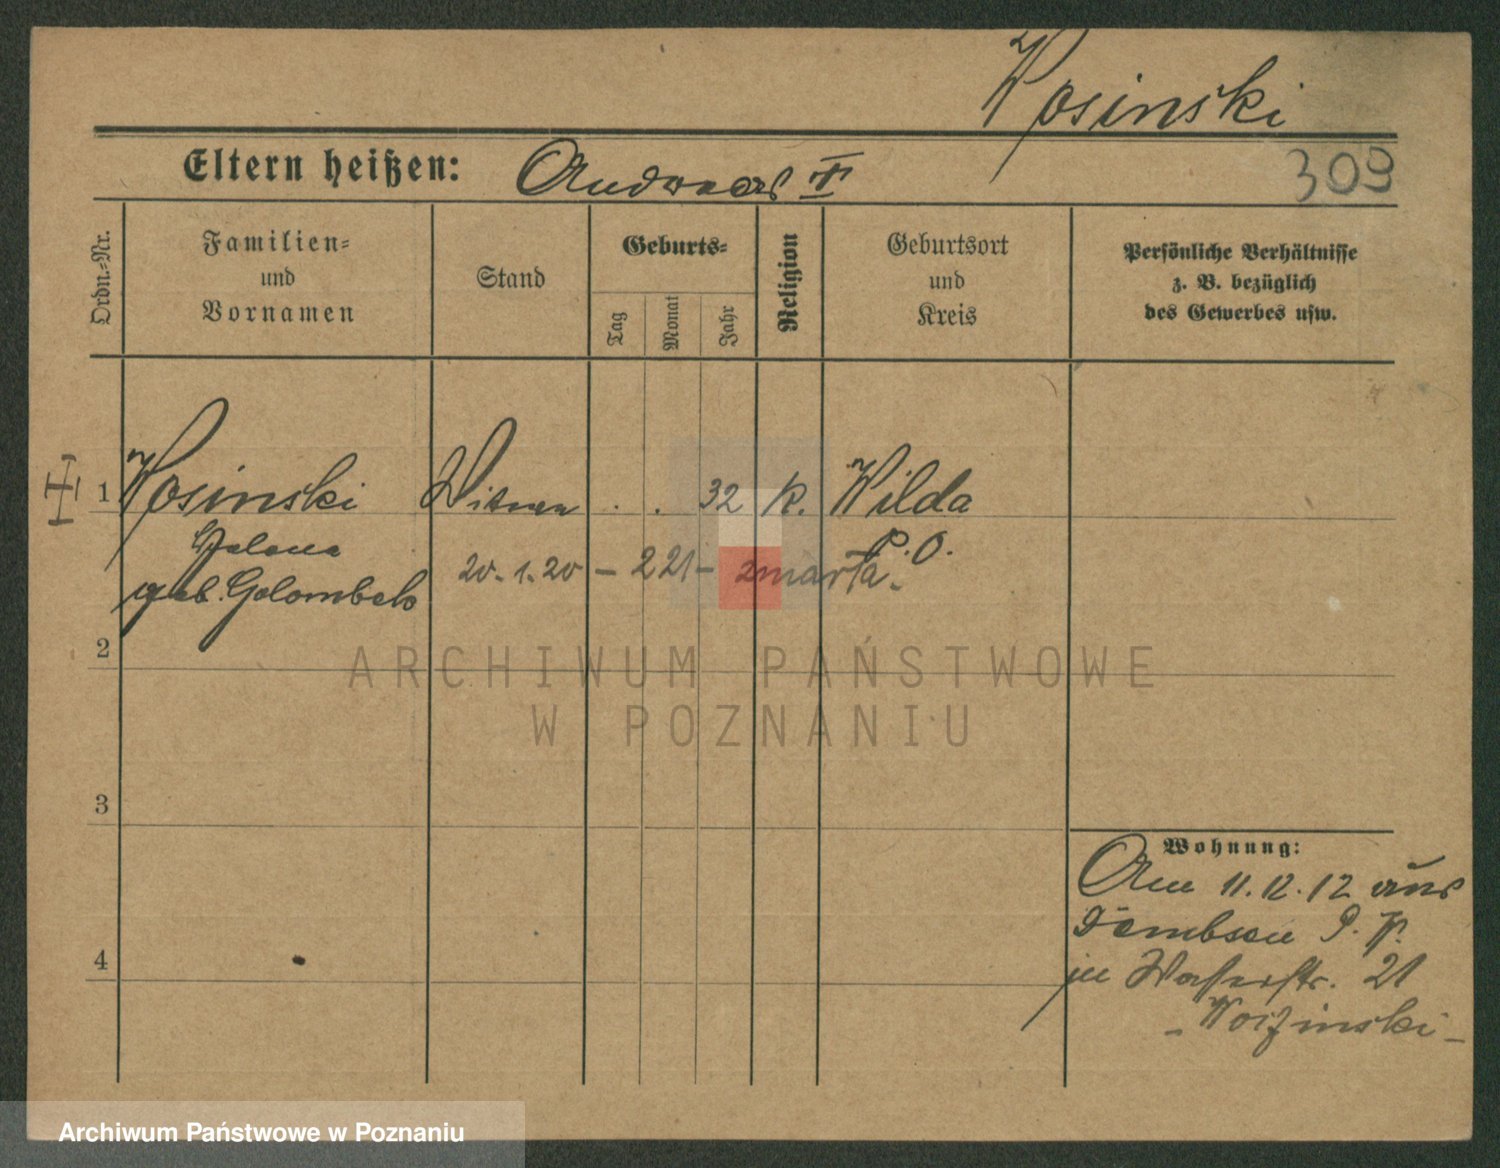 Wosinski
Eltern heißen: Andreas †
309
Ordn.-Nr.
Familien-
und
Vornamen
Stand
Geburts-
Tag
Monat
Jahr
Religion
Geburtsort
und
Kreis
Persönliche Verhältnisse
z. B. bezüglich
des Gewerbes usw.
1 Wosinski . . 32 K. Wilda
P. O.
geb. Golombek
20.1.20 – 2 21 – zmarła –
2
ARCHIWUM PAŃSTWOWE
W POZNANIU
3
4
Wohnung:
Am 11.12.12 aus
Dembsen P. W.
in Wasserstr. 21
- Woizinski -
Archiwum Państwowe w Poznaniu